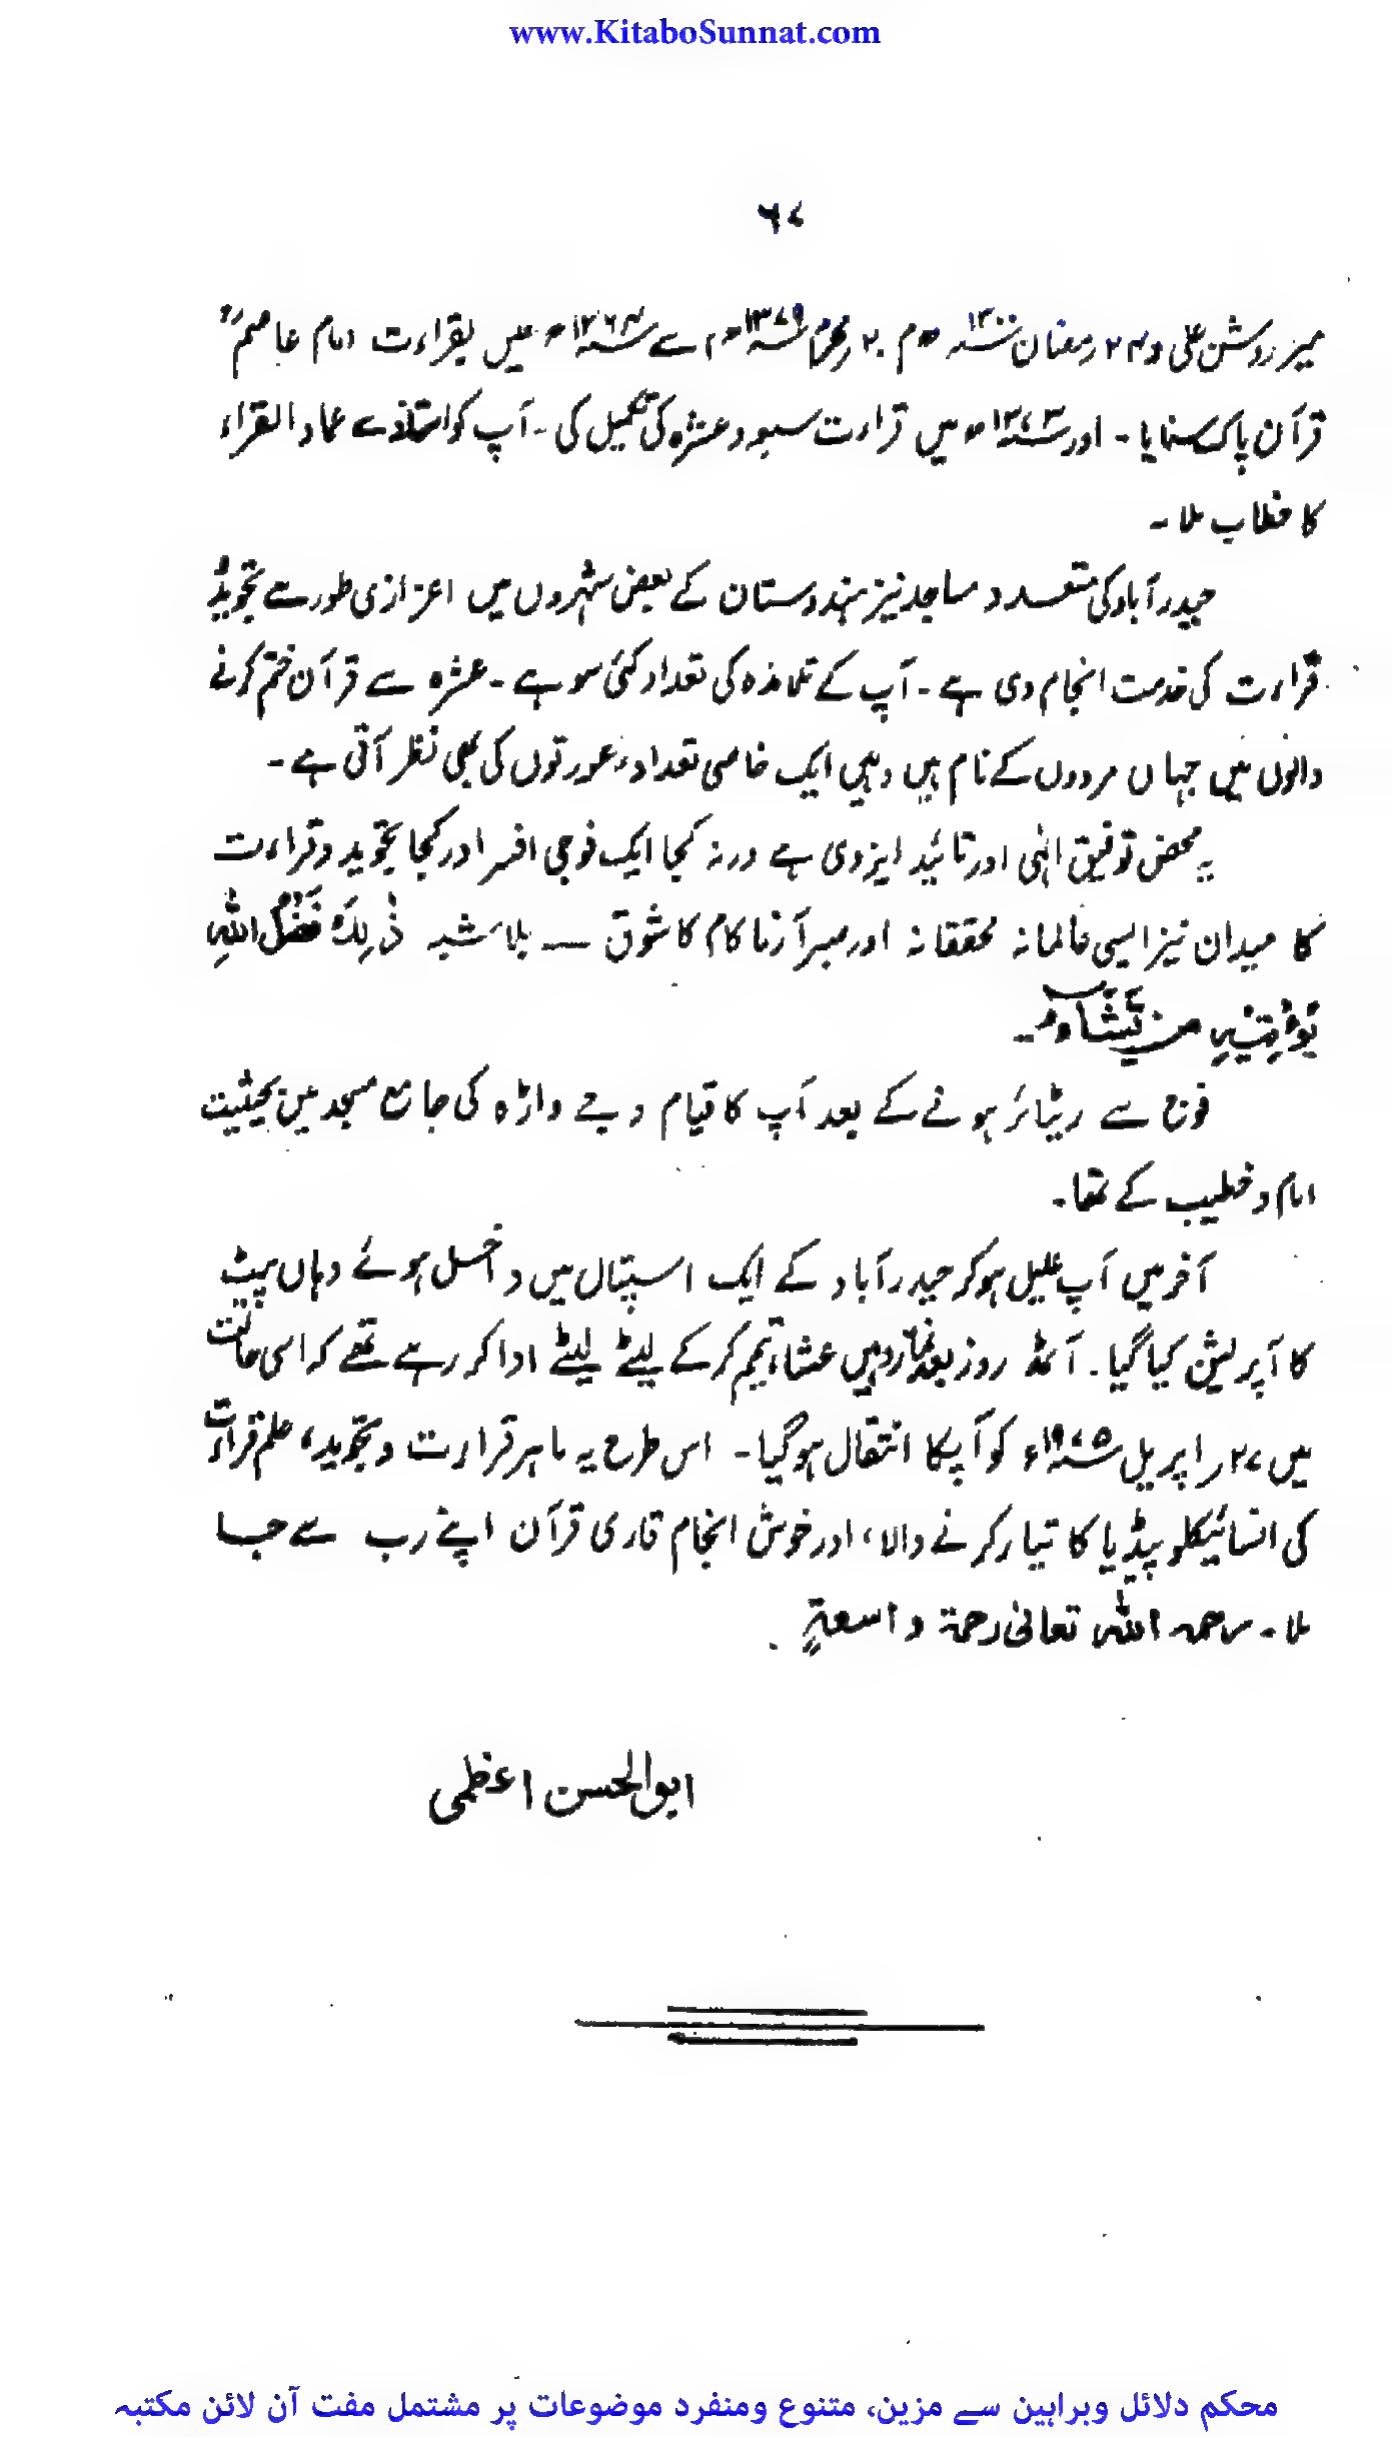 www.KitaboSunnat.com
٦٧
میر روشن علی و ۲۴ رمضان ۱۳۰۰ھ م ۲۰ محرم ۱۳۷۹ھ سے ۱۳۶۴ھ میں بقراءت امام عاصمؒ
قرآن پاک سنایا ۔ اور میں قراءت سبعہ و عشرہ کی تکمیل کی ۔ آپ کو استاذ سے عماد القراء
کا خطاب ملا ۔
حیدرآباد کی متعدد مساجد نیز ہندوستان کے بعض شہروں میں اعزازی طور سے تجوید و
قراءت کی خدمت انجام دی ہے ۔ آپ کے تلامذہ کی تعداد کئی سو ہے ۔ عشرہ سے قرآن ختم کرنے
والوں میں جہاں مردوں کے نام ہیں وہیں ایک خاصی تعداد عورتوں کی بھی نظر آتی ہے ۔
یہ محض توفیق الٰہی اور تائید ایزدی ہے ورنہ کجا ایک فوجی افسر اور کجا تجوید و قراءت
کا میدان نیز ایسی عالمانہ محققانہ اور صبر آزما کام کا شوق — بلا شبہ ذٰلِكَ فَضْلُ اللّٰهِ
يُؤْتِيْهِ مَنْ يَّشَآءُ ۔
فوج سے ریٹائر ہونے کے بعد آپ کا قیام وجے واڑہ کی جامع مسجد میں بحیثیت
امام و خطیب کے تھا ۔
آخر میں آپ علیل ہوکر حیدرآباد کے ایک اسپتال میں داخل ہوئے وہاں پیٹ
کا آپریشن کیا گیا ۔ آٹھ روز بعد نماز عشاء تیمم کر کے لیٹے لیٹے ادا کر رہے تھے کہ اسی حالت
میں ۲۷ اپریل ۱۹۷۵ء کو آپ کا انتقال ہو گیا ۔ اس طرح یہ ماہر قراءت و تجوید، علم قراءت
کی انسائیکلوپیڈیا کا تیار کرنے والا، اور خوش انجام قاری قرآن اپنے رب سے جا
ملا ۔ رحمہ اللہ تعالیٰ رحمۃ واسعۃً
ابوالحسن اعظمی
محکم دلائل وبراہین سے مزین، متنوع ومنفرد موضوعات پر مشتمل مفت آن لائن مکتبہ